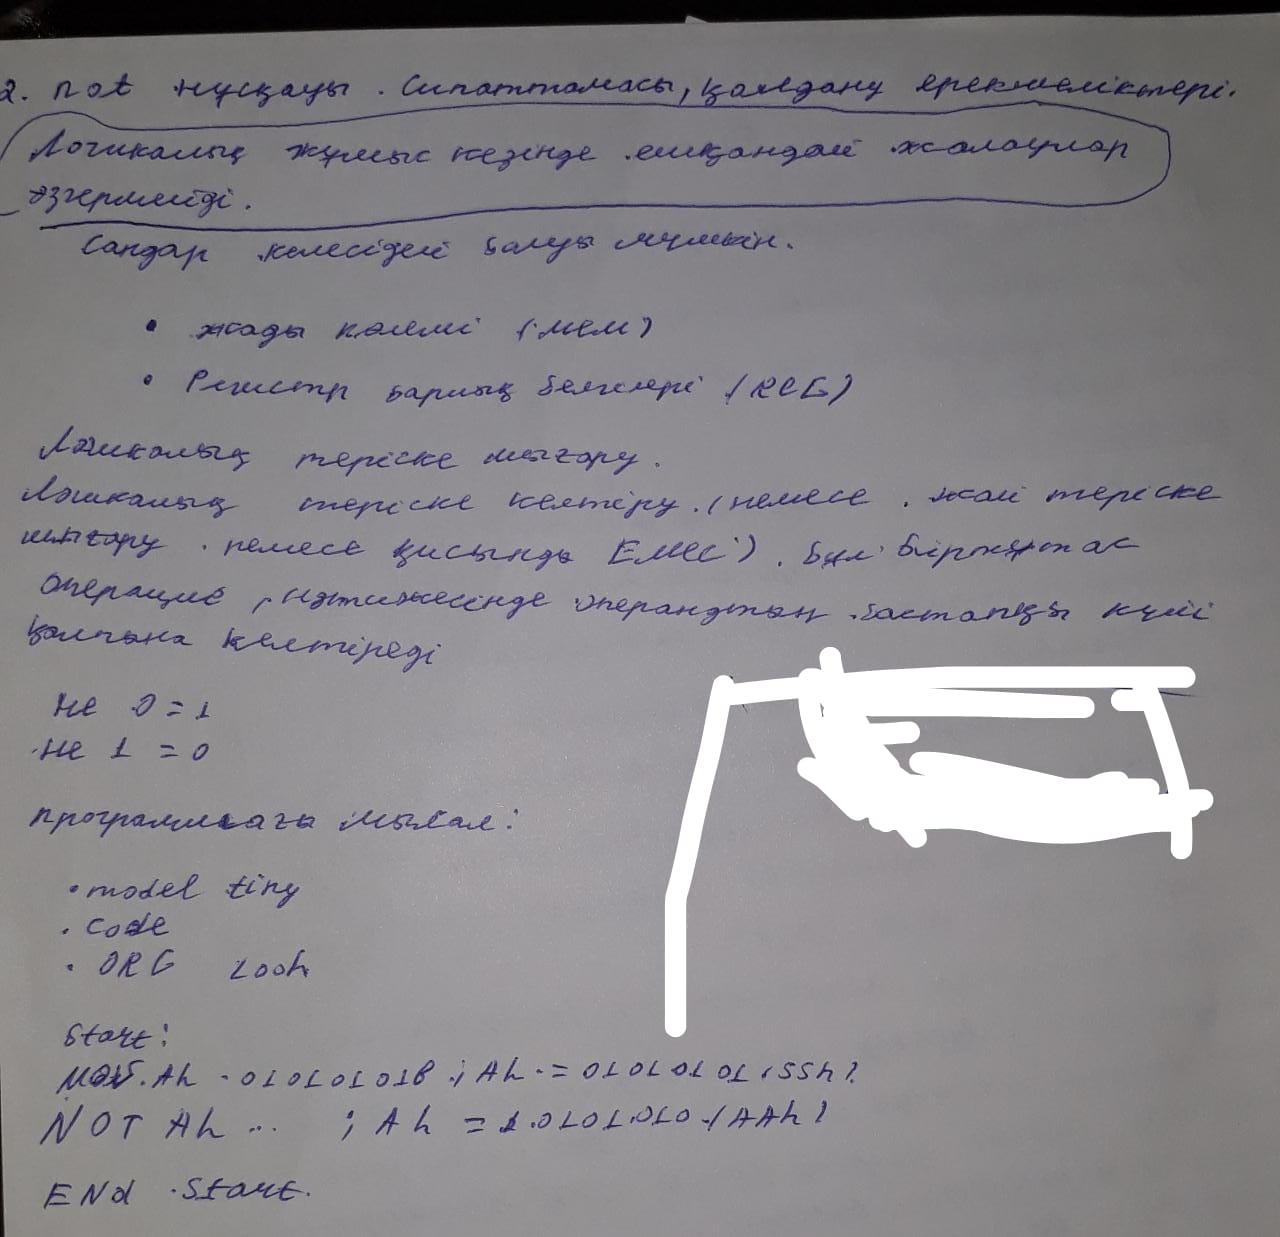 2. not нұсқауы. Сипаттамасы, қолдану ерекшеліктері.
Логикалық жұмыс кезінде ешқандай жалаулар
өзгермейді.
Сандар келесідей болуы мүмкін.
• жады көлемі (мем)
• Регистр барлық белгілері (REG)
Логикалық теріске шығару.
Логикалық теріске келтіру. (немесе. жай теріске
шығару. немесе қисынды ЕМЕС). Бұл біртұтас
операция, нәтижесінде операндтың бастапқы күйі
қалпына келтіреді
не 0 = 1
не 1 = 0
программасағы мысал:
.model tiny
.code
.ORG 100h
Start:
Mov. Ah . 01010101B ; Ah = 01010101 (55h)
NOT Ah ... ; Ah = 10101010 (AAh)
ENd .Start.